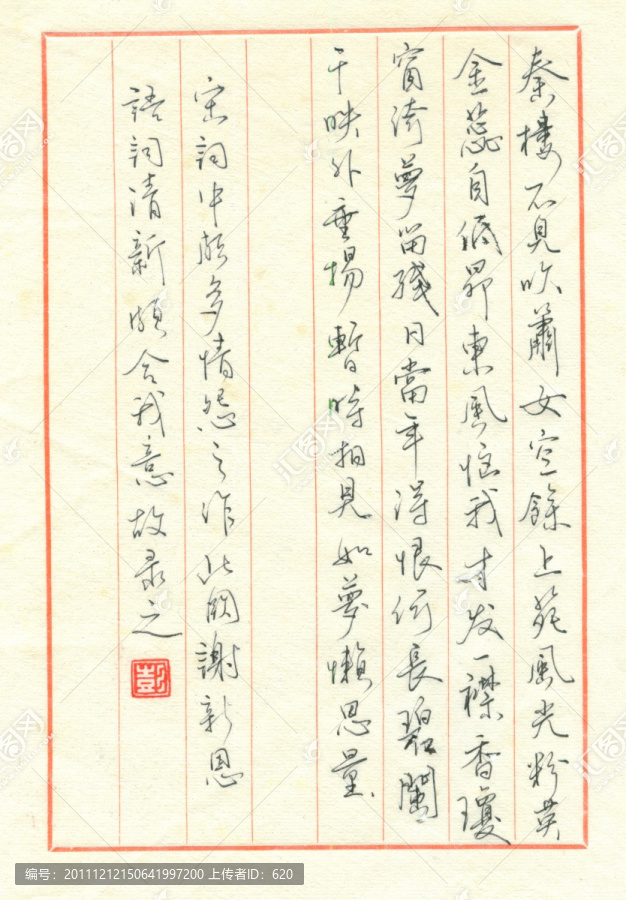 秦樓不見吹蕭女空餘上苑風光粉英
金蕊自低昂東風惱我才发一襟香瓊
窗夢留殘日當年得恨何長碧闌
干映外垂楊暫時相見如夢懶思量
宋詞中頗多情怨之作此闋謝新恩
語詞清新頗合我意故录之
彭
汇图网
编号：20111212150641997200 上传者ID：620